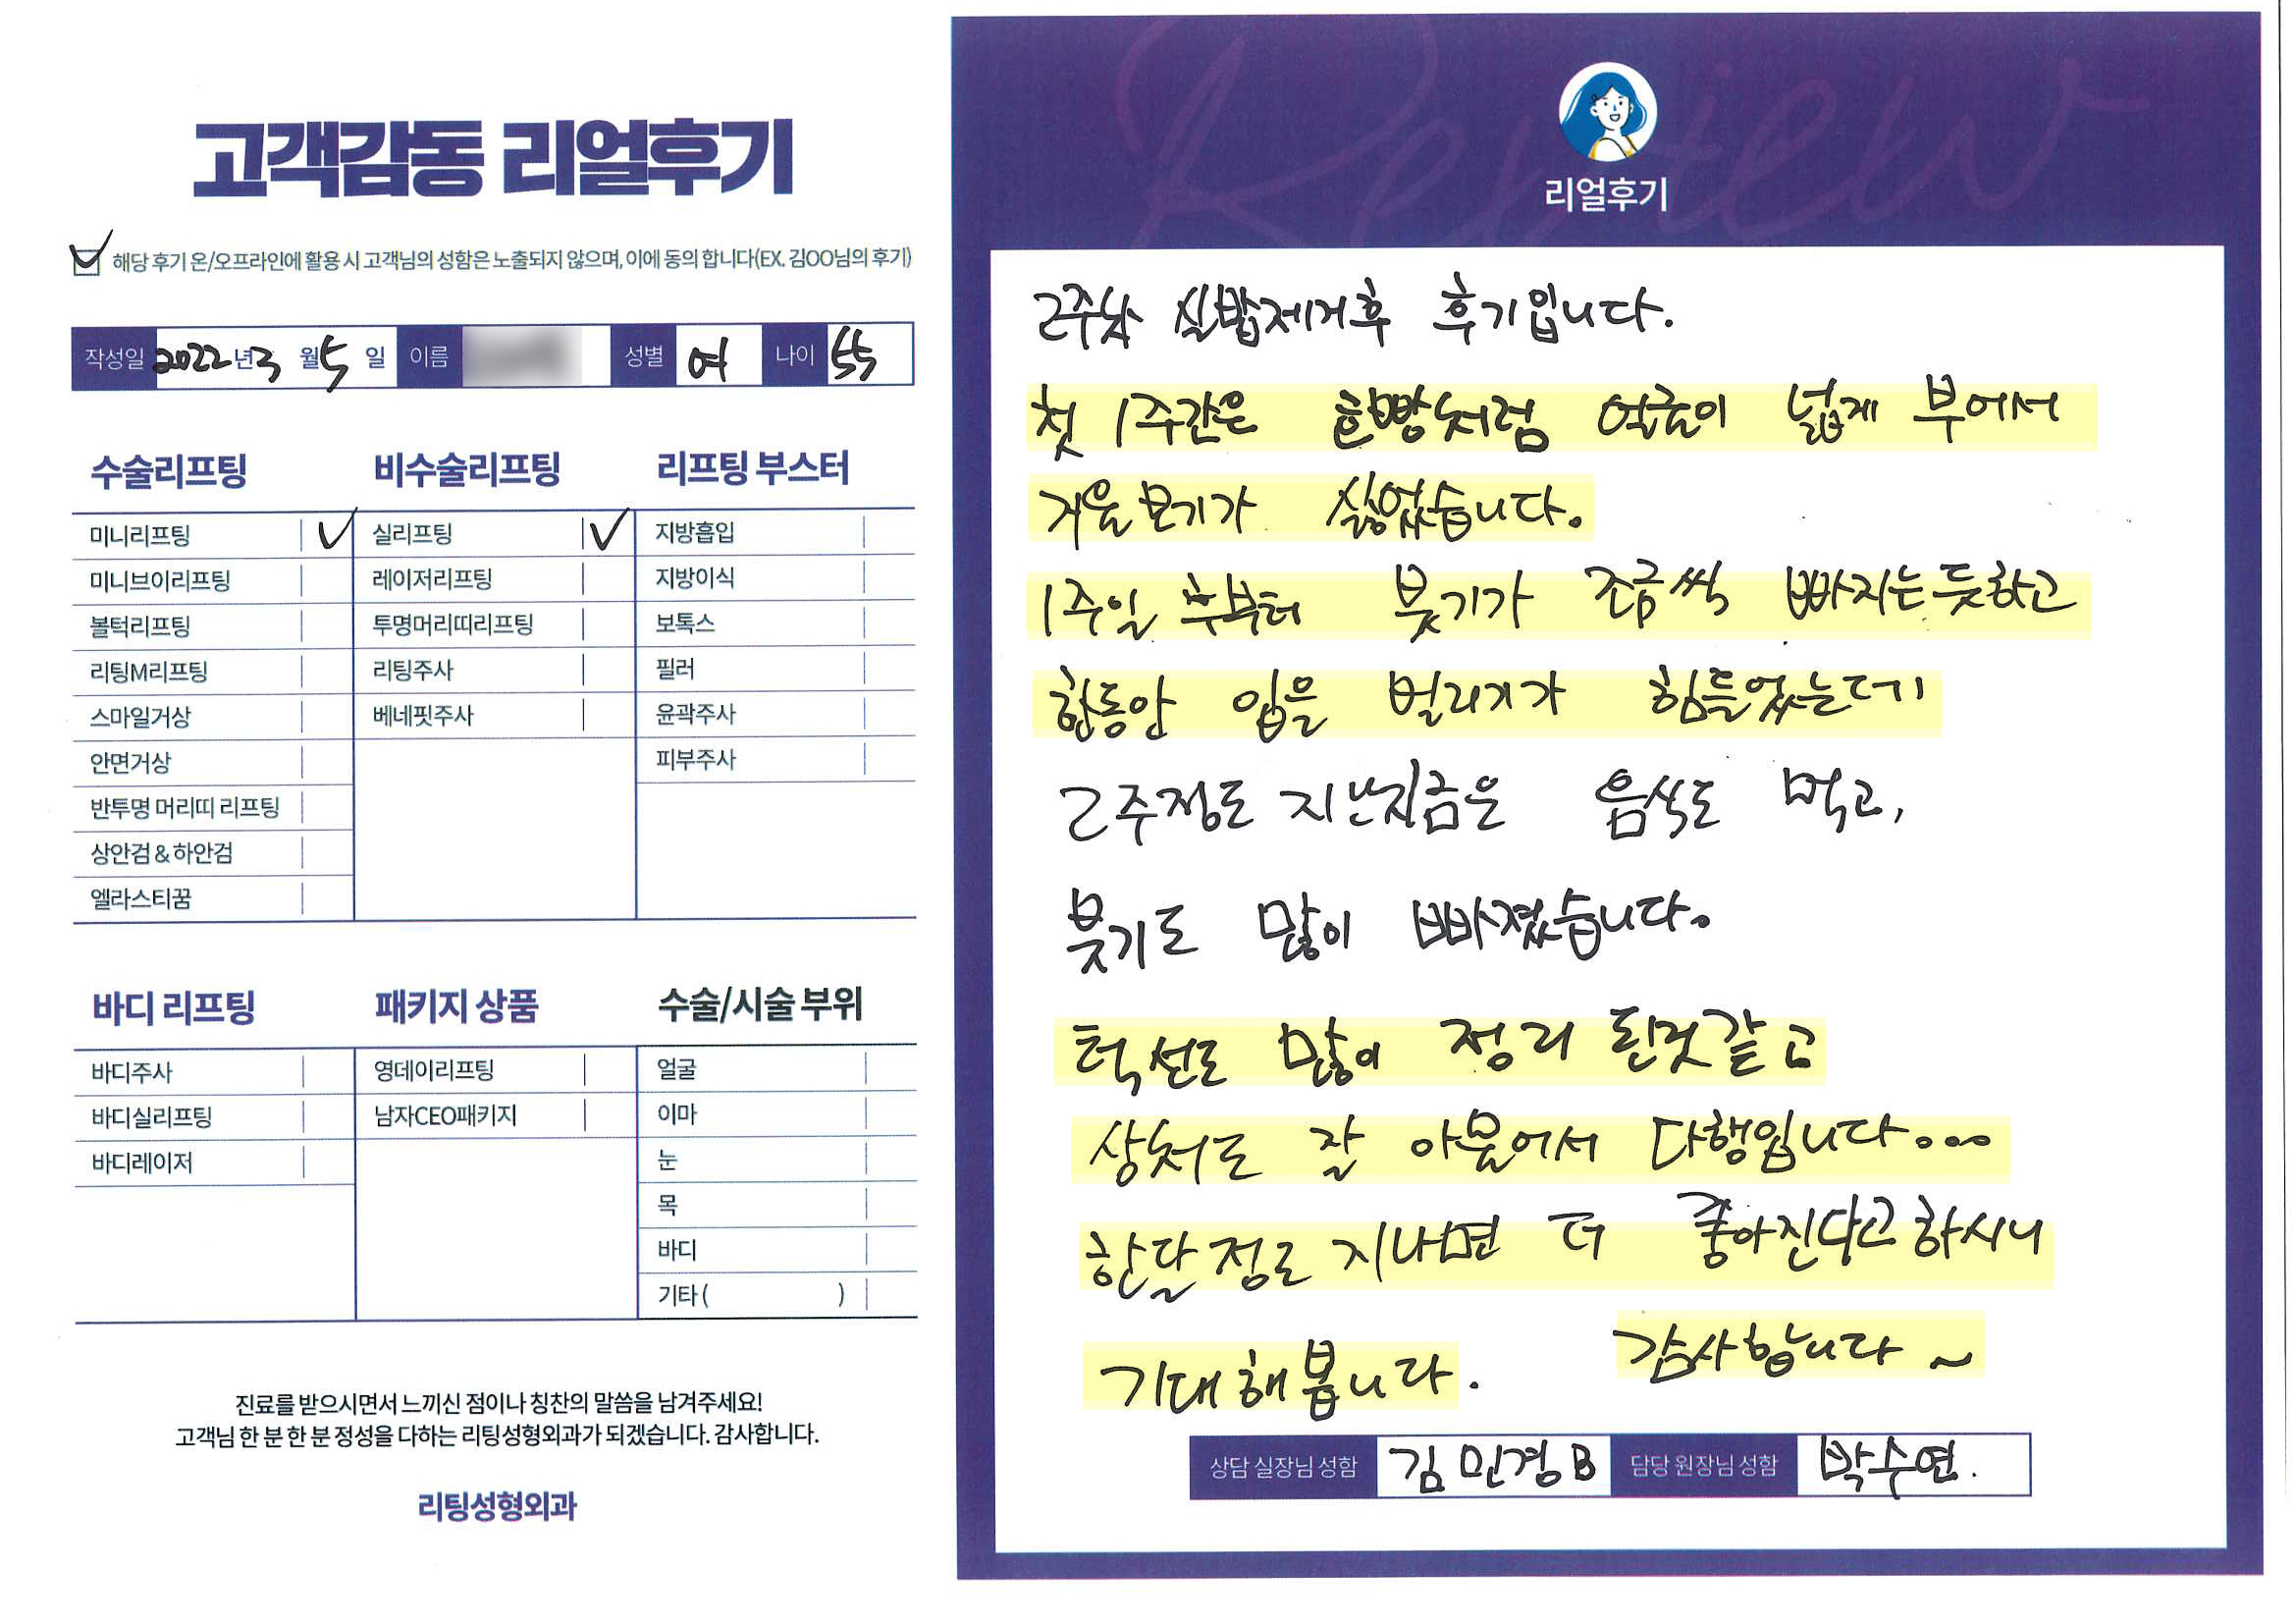 고객감동 리얼후기
해당 후기 온/오프라인에 활용 시 고객님의 성함은 노출되지 않으며, 이에 동의 합니다(EX. 김OO님의 후기)
작성일 2022 년 3 월 5 일 이름 성별 여 나이 55
수술리프팅
미니리프팅 ✓
미니브이리프팅
볼턱리프팅
리팅M리프팅
스마일거상
안면거상
반투명 머리띠 리프팅
상안검 & 하안검
엘라스티꿈
비수술리프팅
실리프팅 ✓
레이저리프팅
투명머리띠리프팅
리팅주사
베네핏주사
리프팅 부스터
지방흡입
지방이식
보톡스
필러
윤곽주사
피부주사
바디 리프팅
바디주사
바디실리프팅
바디레이저
패키지 상품
영데이리프팅
남자CEO패키지
수술/시술 부위
얼굴
이마
눈
목
바디
기타 ( )
진료를 받으시면서 느끼신 점이나 칭찬의 말씀을 남겨주세요!
고객님 한 분 한 분 정성을 다하는 리팅성형외과가 되겠습니다. 감사합니다.
리팅성형외과
Review
리얼후기
2주차 실밥제거후 후기입니다.
첫 1주간은 호빵처럼 얼굴이 넓게 부어서
거울보기가 싫었습니다.
1주일 후부터 붓기가 조금씩 빠지는듯하고
한동안 입을 벌리기가 힘들었는데
2주정도 지난지금은 음식도 먹고,
붓기도 많이 빠졌습니다.
턱선도 많이 정리 된것같고
상처도 잘 아물어서 다행입니다...
한달정도 지나면 더 좋아진다고하시니
기대해봅니다. 감사합니다~
상담 실장님 성함 김민경B 담당 원장님 성함 박수연.